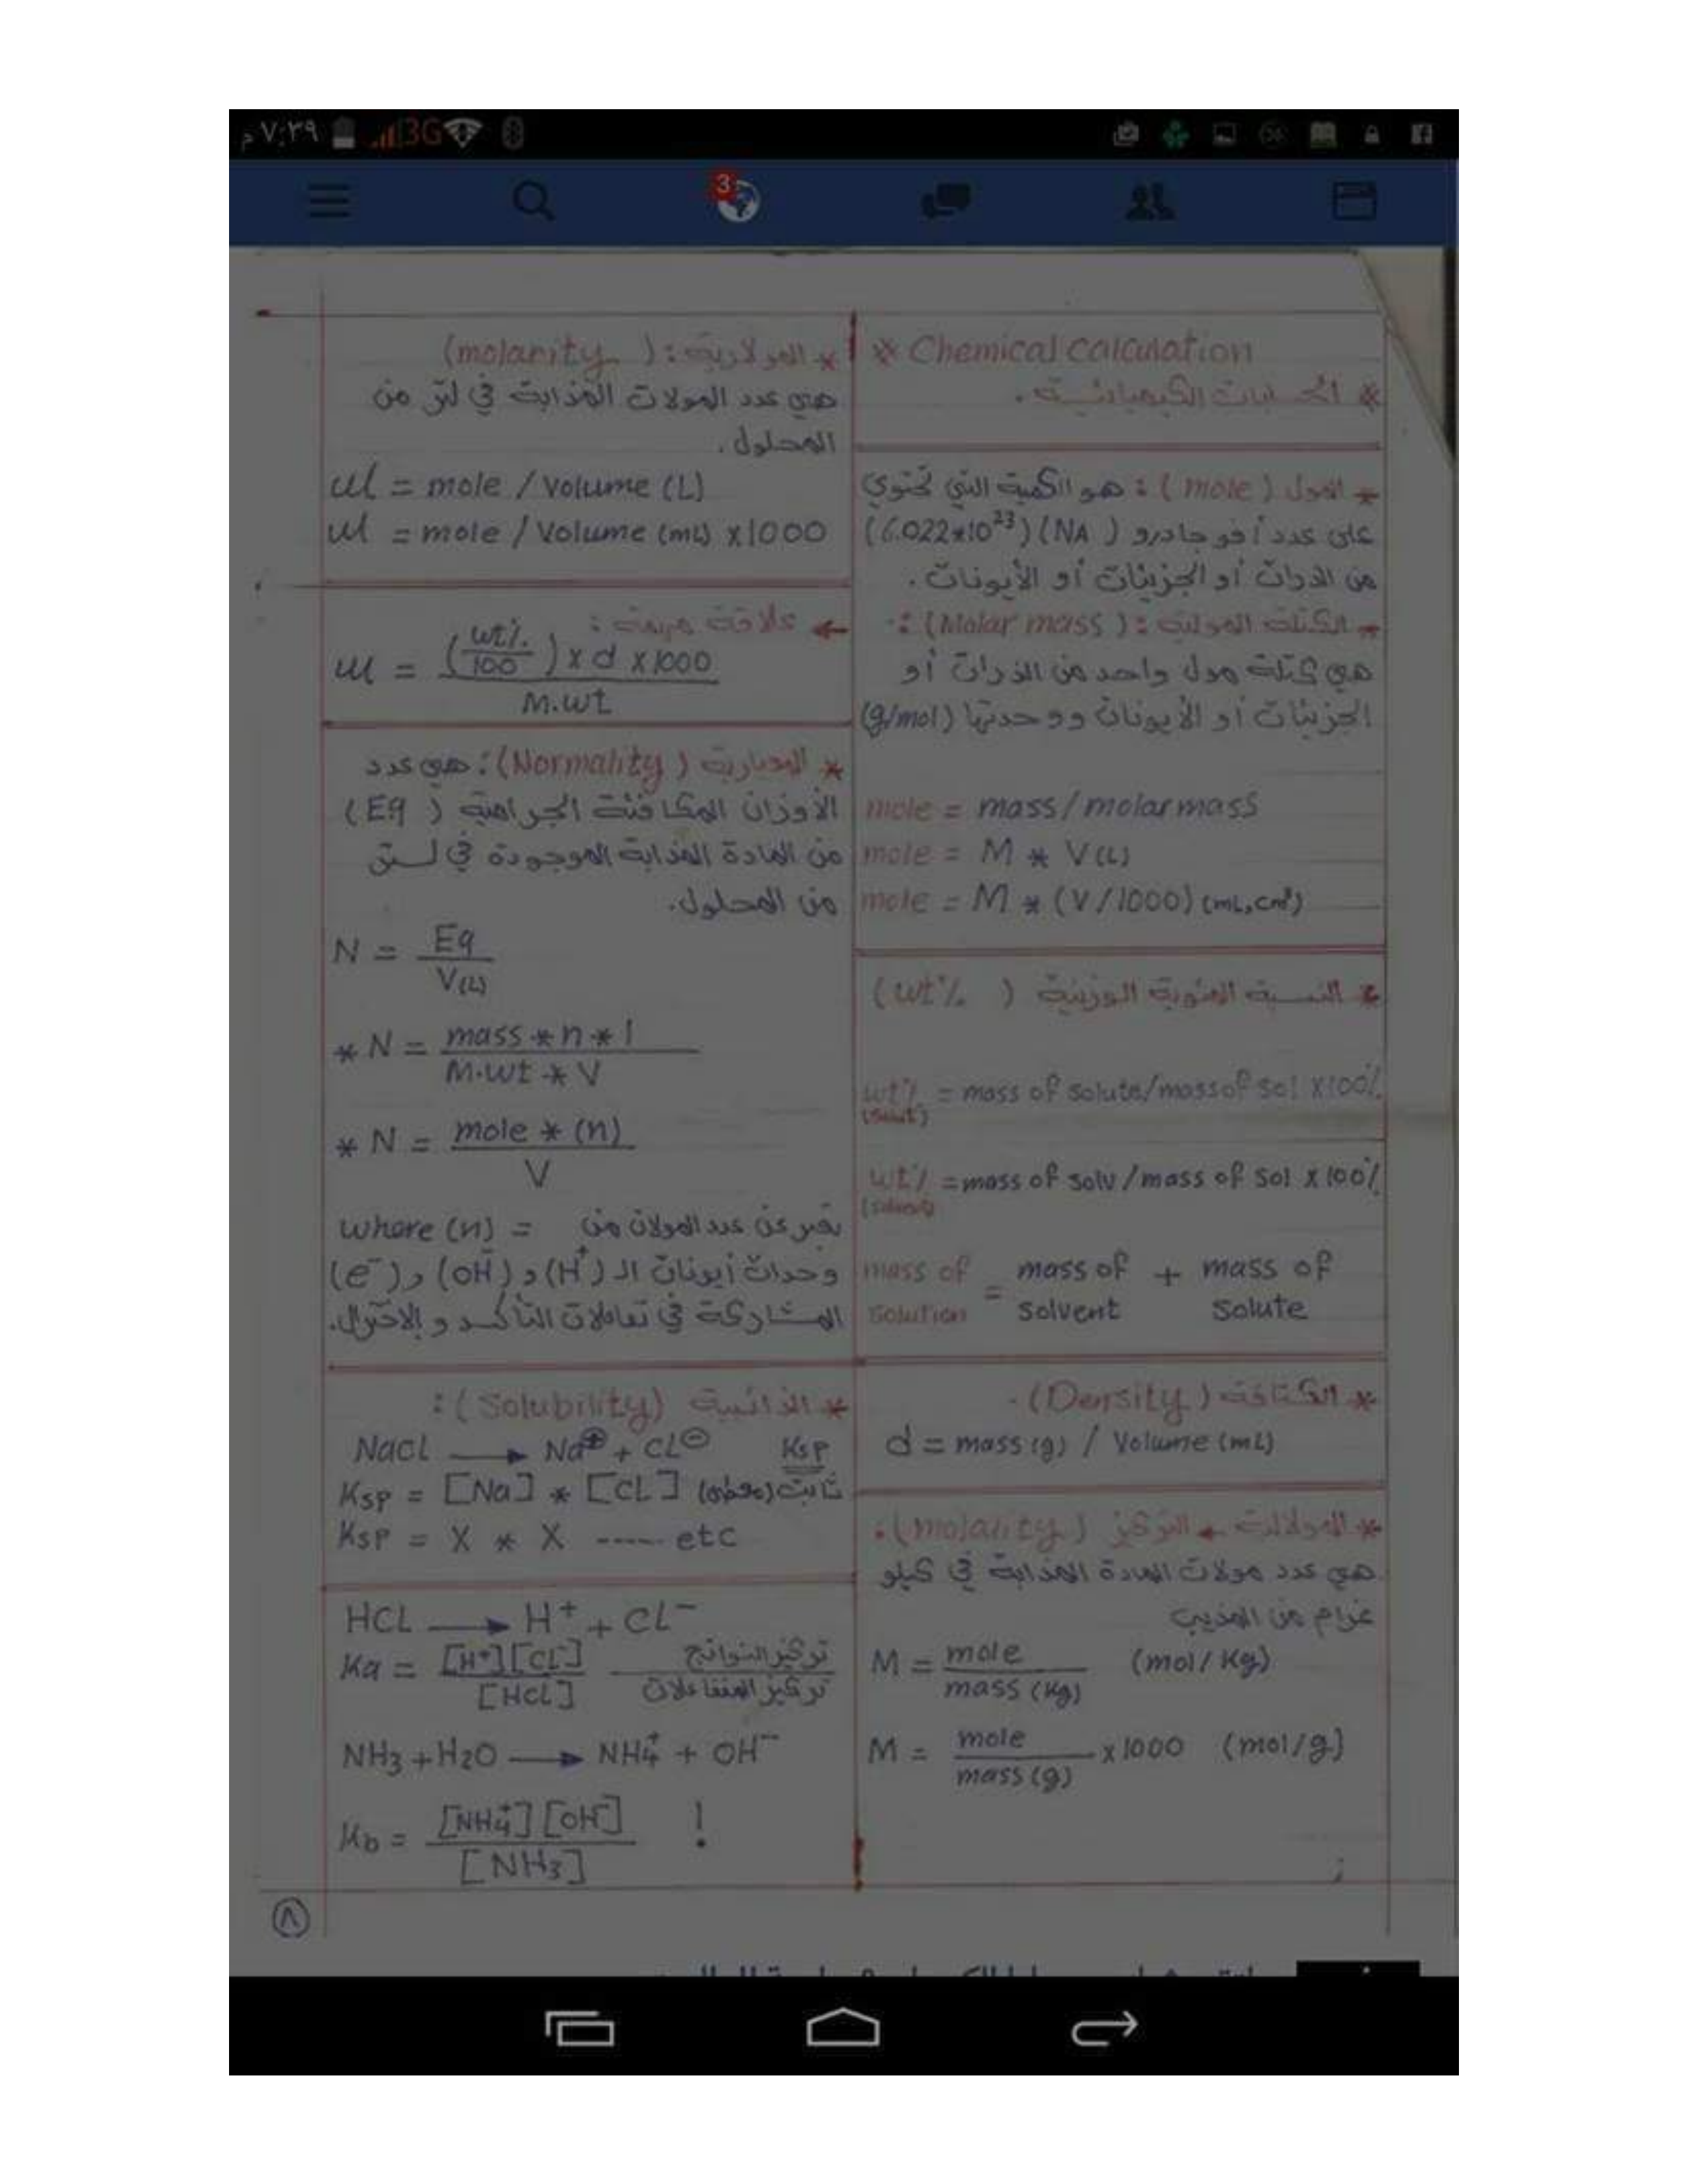 ٧:٣٩ م
3G
3
* Chemical Calculation
* الحسابات الكيميائية.
* المول (mole): هو الكمية التي تحتوي
على عدد أفوجادرو (NA) (6.022*10²³)
من الذرات أو الجزيئات أو الأيونات.
* الكتلة المولية: (Molar mass):
هي كتلة مول واحد من الذرات أو
الجزيئات أو الأيونات ووحدتها (g/mol)
mole = mass/molar mass
mole = M * V(L)
mole = M * (V/1000) (mL,cm³)
* النسبة المئوية الوزنية (wt%)
wt% = mass of solute/mass of sol x100%
(solut)
wt% = mass of solv/mass of sol x100%
mass of solution = mass of solvent + mass of solute
* الكثافة (Density)
d = mass(g) / Volume(mL)
* المولالية ← التركيز (molality):
هي عدد مولات المادة المذابة في كيلو
غرام من المذيب
M = mole / mass(Kg) (mol/Kg)
M = mole / mass(g) x1000 (mol/g)
* المولارية: (molarity)
هي عدد المولات المذابة في لتر من
المحلول.
M = mole / Volume (L)
M = mole / Volume (mL) x1000
← علاقة مهمة:
M = (wt%/100) x d x1000 / M.wt
* المعيارية (Normality): هي عدد
الأوزان المكافئة الجرامية (Eq)
من المادة المذابة الموجودة في لتر
من المحلول.
N = Eq / V(L)
* N = mass * n * 1 / M.wt * V
* N = mole * (n) / V
where (n) = تعبر عن عدد المولات من
وحدات أيونات الـ (H⁺) و (OH⁻) و (e⁻)
المشاركة في تفاعلات التأكسد والاختزال.
* الذائبية (Solubility):
NaCl → Na⊕ + CL⊖ Ksp
Ksp = [Na] * [CL] ثابت (معطى)
Ksp = X * X ----- etc
HCL → H⁺ + CL⁻
Ka = [H⁺][CL⁻] / [HCL] تركيز النواتج / تركيز المتفاعلات
NH₃ + H₂O → NH₄⁺ + OH⁻
Kb = [NH₄⁺][OH⁻] / [NH₃] !
٨